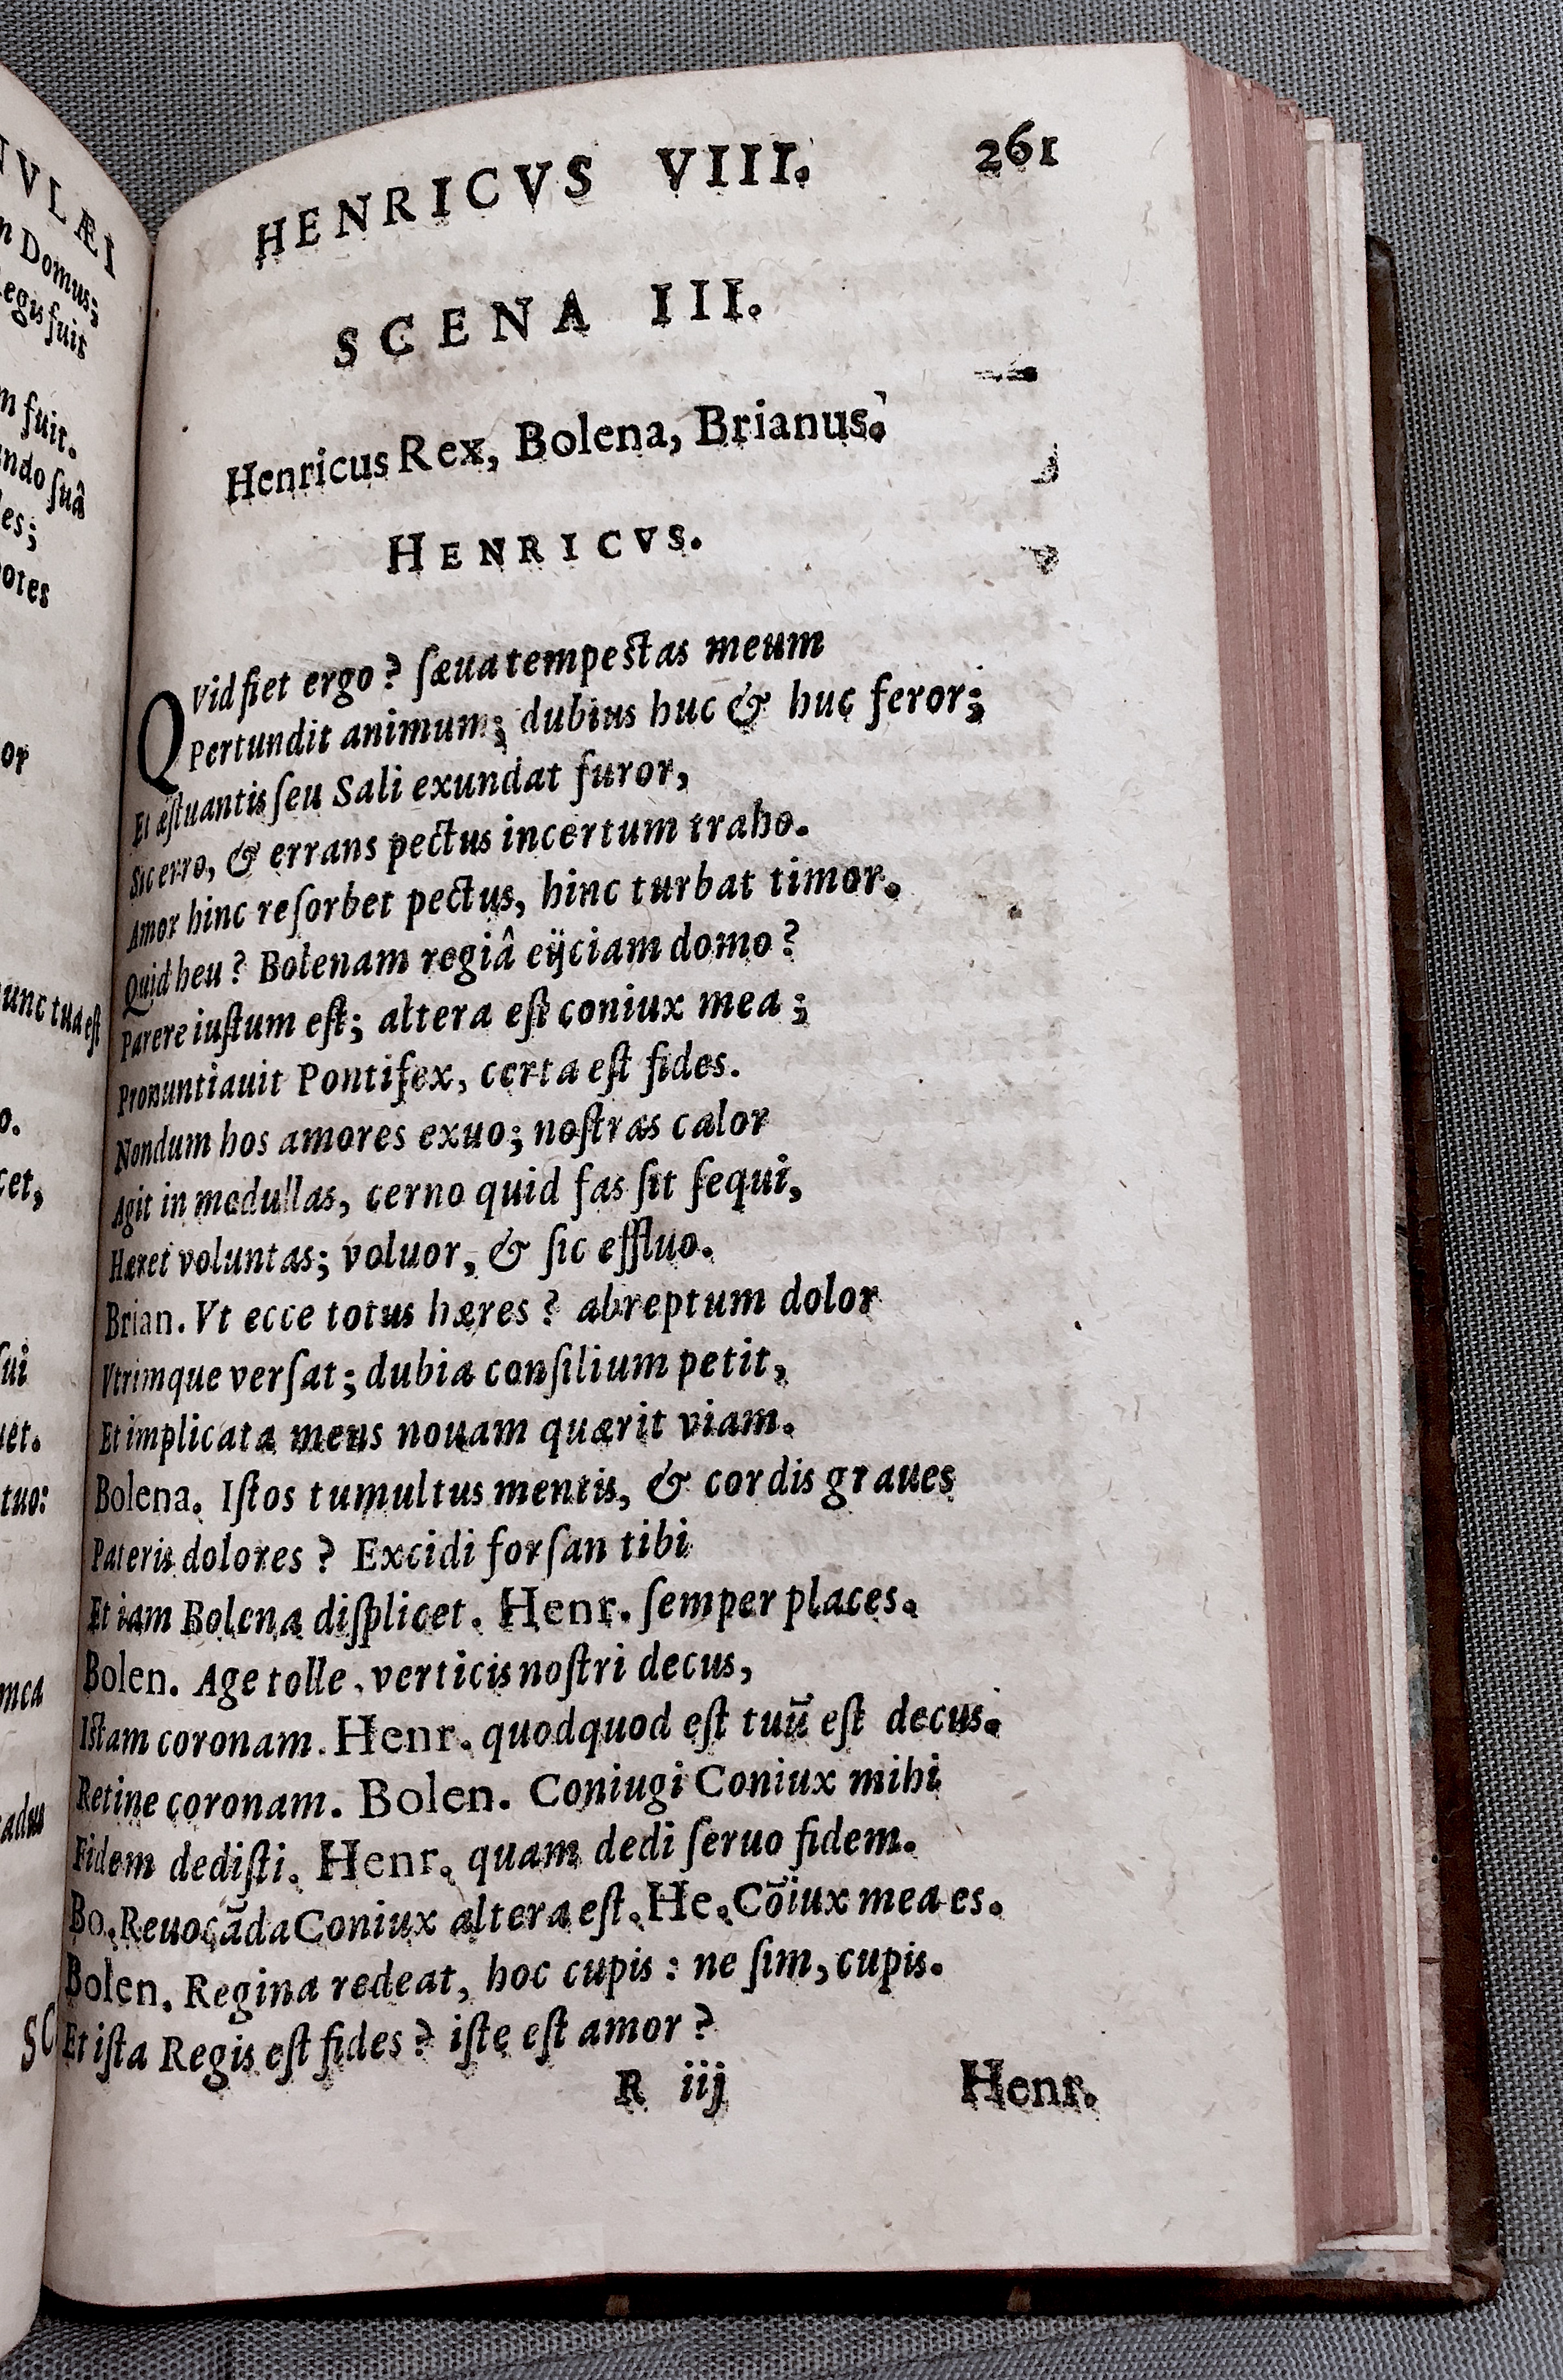 HENRICVS VIII. 261
SCENA III.
Henricus Rex, Bolena, Brianus.
HENRICVS.
QVid fiet ergo? ſæua tempeſtas meum
Pertundit animum; dubius huc & huc feror;
Et æſtuantis ſeu Sali exundat furor,
Sic erro, & errans pectus incertum traho.
Amor hinc reſorbet pectus, hinc turbat timor.
Quid heu? Bolenam regiâ eijciam domo?
Parere iuſtum eſt; altera eſt coniux mea;
Pronuntiauit Pontifex, certa eſt fides.
Nondum hos amores exuo; noſtras calor
Agit in medullas, cerno quid fas ſit ſequi,
Hæret voluntas; voluor, & ſic effluo.
Brian. Vt ecce totus hæres? abreptum dolor
Vtrimque verſat; dubia conſilium petit,
Et implicata mens nouam quærit viam.
Bolena. Iſtos tumultus mentis, & cordis graues
Pateris dolores? Excidi forſan tibi
Et iam Bolena diſplicet. Henr. ſemper places.
Bolen. Age tolle, verticis noſtri decus,
Iſtam coronam. Henr. quodquod eſt tuū eſt decus.
Retine coronam. Bolen. Coniugi Coniux mihi
Fidem dediſti. Henr. quam dedi ſeruo fidem.
Bo. Reuocāda Coniux altera eſt. He. Cōiux mea es.
Bolen. Regina redeat, hoc cupis: ne ſim, cupis.
Et iſta Regis eſt fides? iſte eſt amor?
R iij Henr.